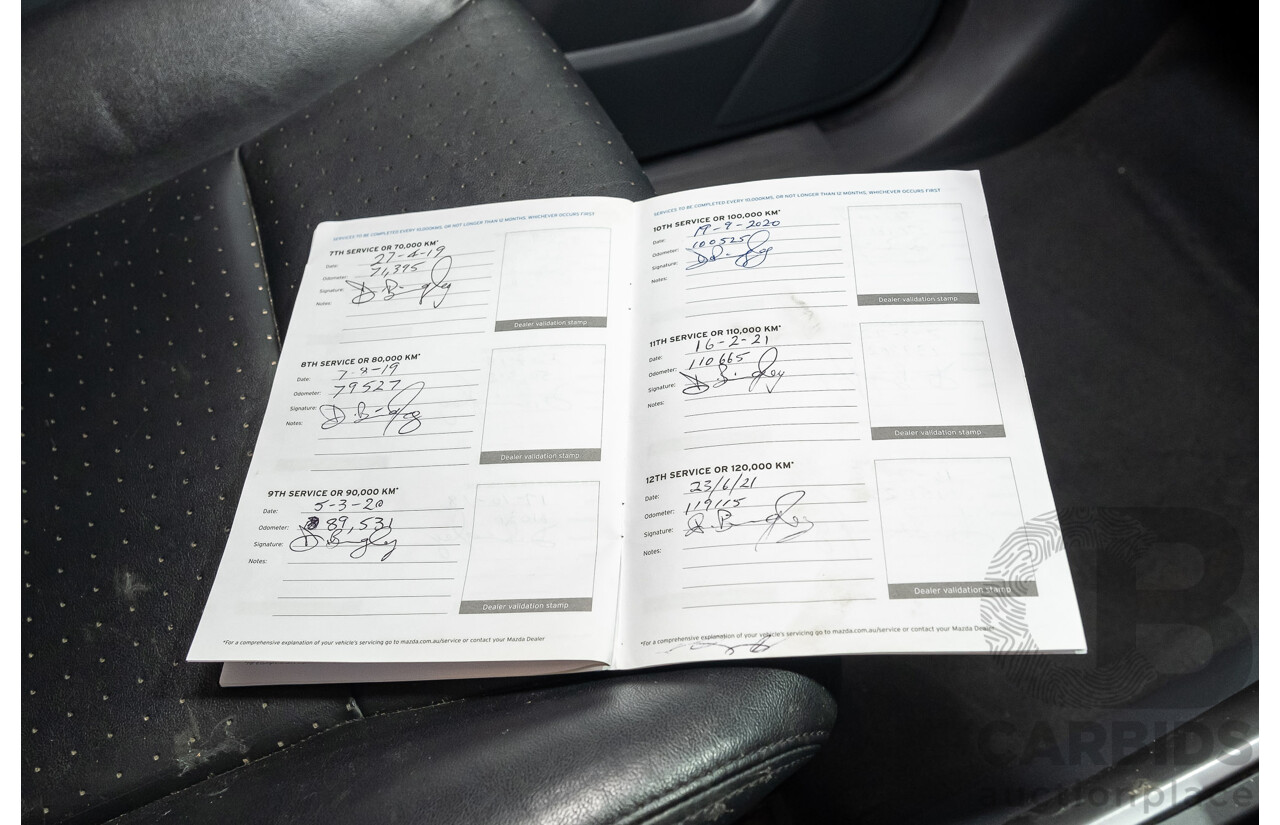 SERVICES TO BE COMPLETED EVERY 10,000KMS, OR NOT LONGER THAN 12 MONTHS, WHICHEVER OCCURS FIRST
7TH SERVICE OR 70,000 KM*
Date: 27-4-19
Odometer: 71,395
Signature:
Notes:
Dealer validation stamp
8TH SERVICE OR 80,000 KM*
Date:
Odometer: 79527
Signature:
Notes:
Dealer validation stamp
9TH SERVICE OR 90,000 KM*
Date: 5-3-20
Odometer: 89,531
Signature:
Notes:
Dealer validation stamp
*For a comprehensive explanation of your vehicle's servicing go to mazda.com.au/service or contact your Mazda Dealer
SERVICES TO BE COMPLETED EVERY 10,000KMS, OR NOT LONGER THAN 12 MONTHS, WHICHEVER OCCURS FIRST
10TH SERVICE OR 100,000 KM*
Date: 19-9-2020
Odometer: 100525
Signature:
Notes:
Dealer validation stamp
11TH SERVICE OR 110,000 KM*
Date: 16-2-21
Odometer: 110665
Signature:
Notes:
Dealer validation stamp
12TH SERVICE OR 120,000 KM*
Date: 23/6/21
Odometer: 119115
Signature:
Notes:
Dealer validation stamp
*For a comprehensive explanation of your vehicle's servicing go to mazda.com.au/service or contact your Mazda Dealer
CARBIDS
auctionplace